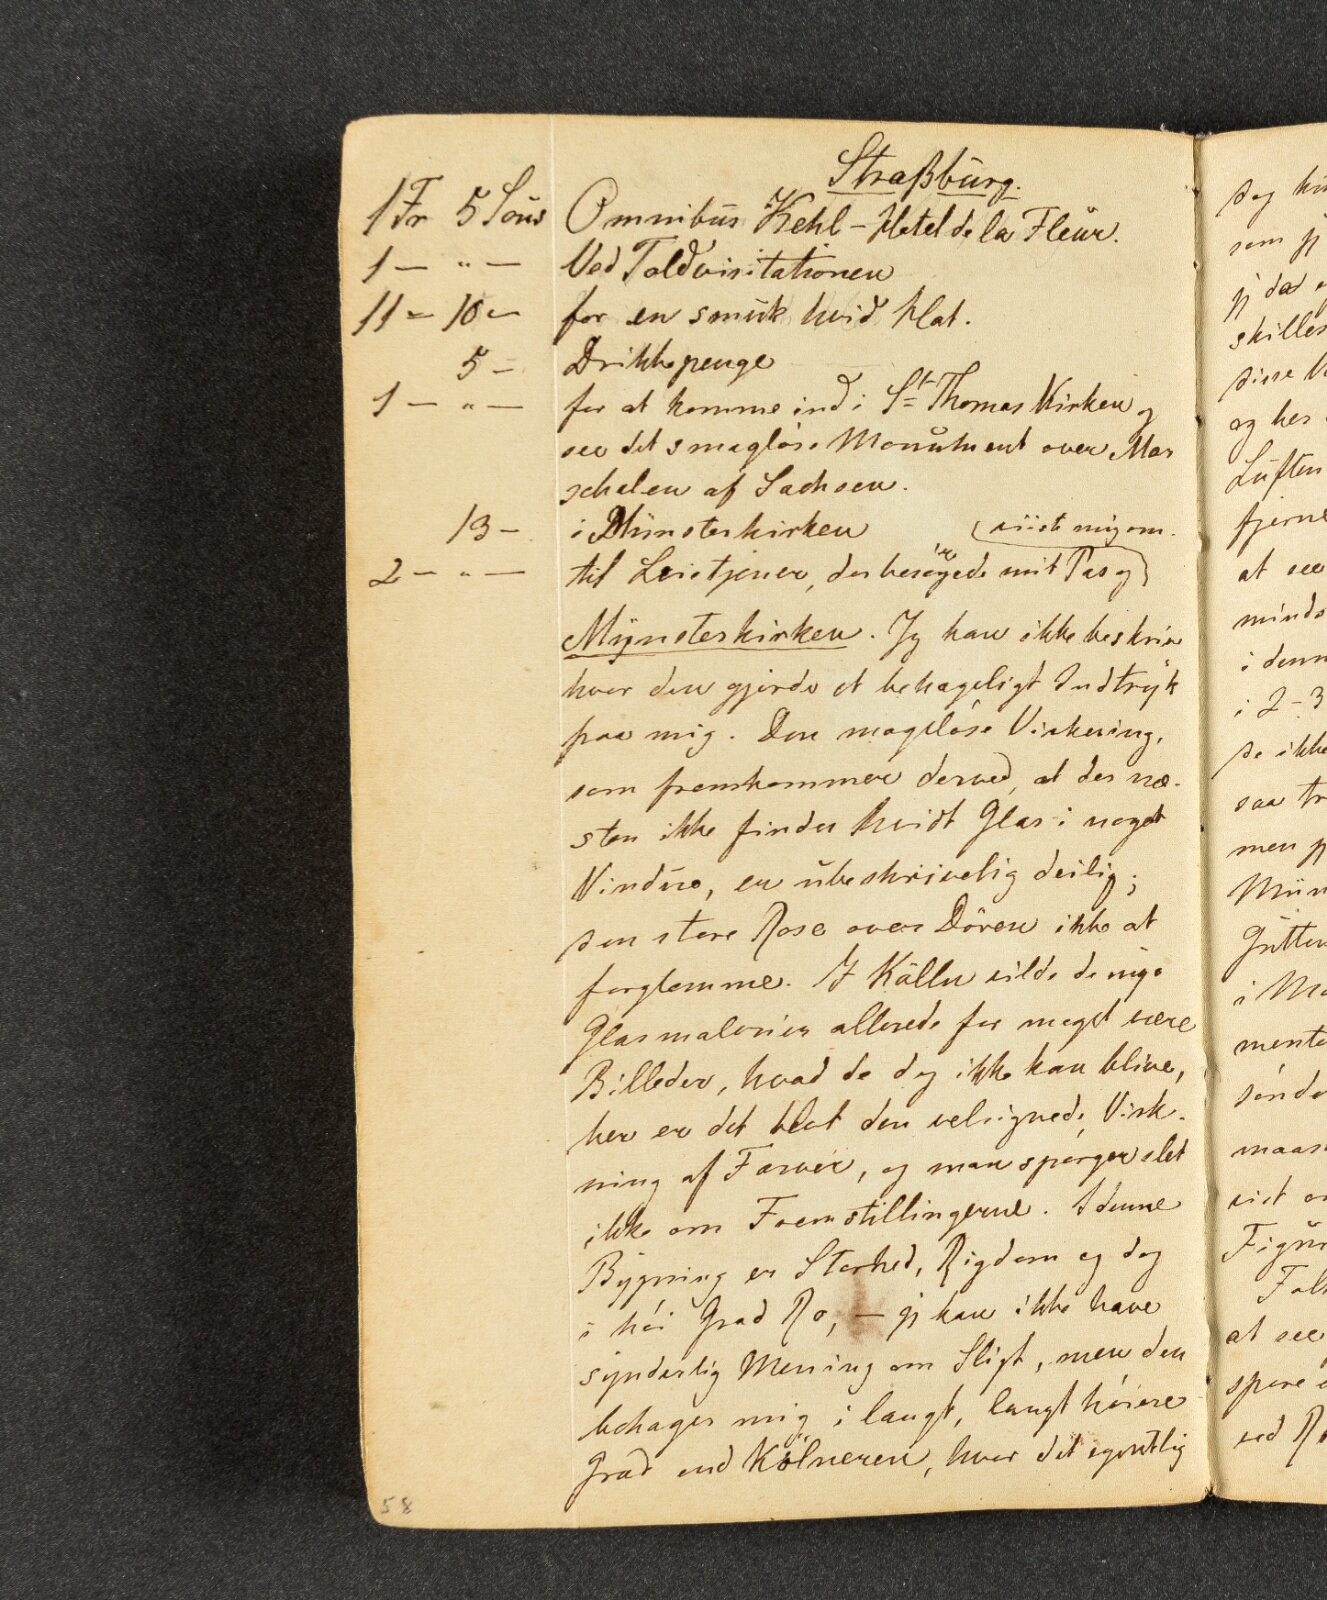 Straßburg.
1 Fr 5 Sous Omnibus Kehl - Hotel de la Fleur.
1 — " — Ved Toldvisitationen
11 — 10 — for en smuk hvid Hat.
5 — Drikkepenge
1 — " — for at komme ind i St Thomas Kirken og
see det smagløse Monument over Mar
schalen af Sachsen.
13 — i Münsterkirken (viiste mig om.
2 — " — til Leietjener, der besørgede mit Pas og)
Mynsterkirken. Jeg kan ikke beskrive
hvor den gjorde et behageligt Indtryk
paa mig. Den mageløse Virkning,
som fremkommer derved, at der næ-
sten ikke findes hvidt Glas i noget
Vindue, er ubeskrivelig deilig;
den store Rose over Døren ikke at
forglemme. I Kølln vilde de nye
Glasmalerier allerede for meget være
Billeder, hvad de dog ikke kan blive,
her er det blot den velsignede Virk-
ning af Farver, og man spørger slet
ikke om Fremstillingerne. I denne
Bygning er Storhed, Rigdom og dog
i høi Grad Ro, — jeg kan ikke have
synderlig Mening om Sligt, men den
behager mig i langt, langt høiere
Grad end Kølneren, hvor det egentlig
58
dog
som jeg
skilles
disse
og her
Luften
fjerne
at see
i 2-3
de ikke
saa
men
i
at see
ved